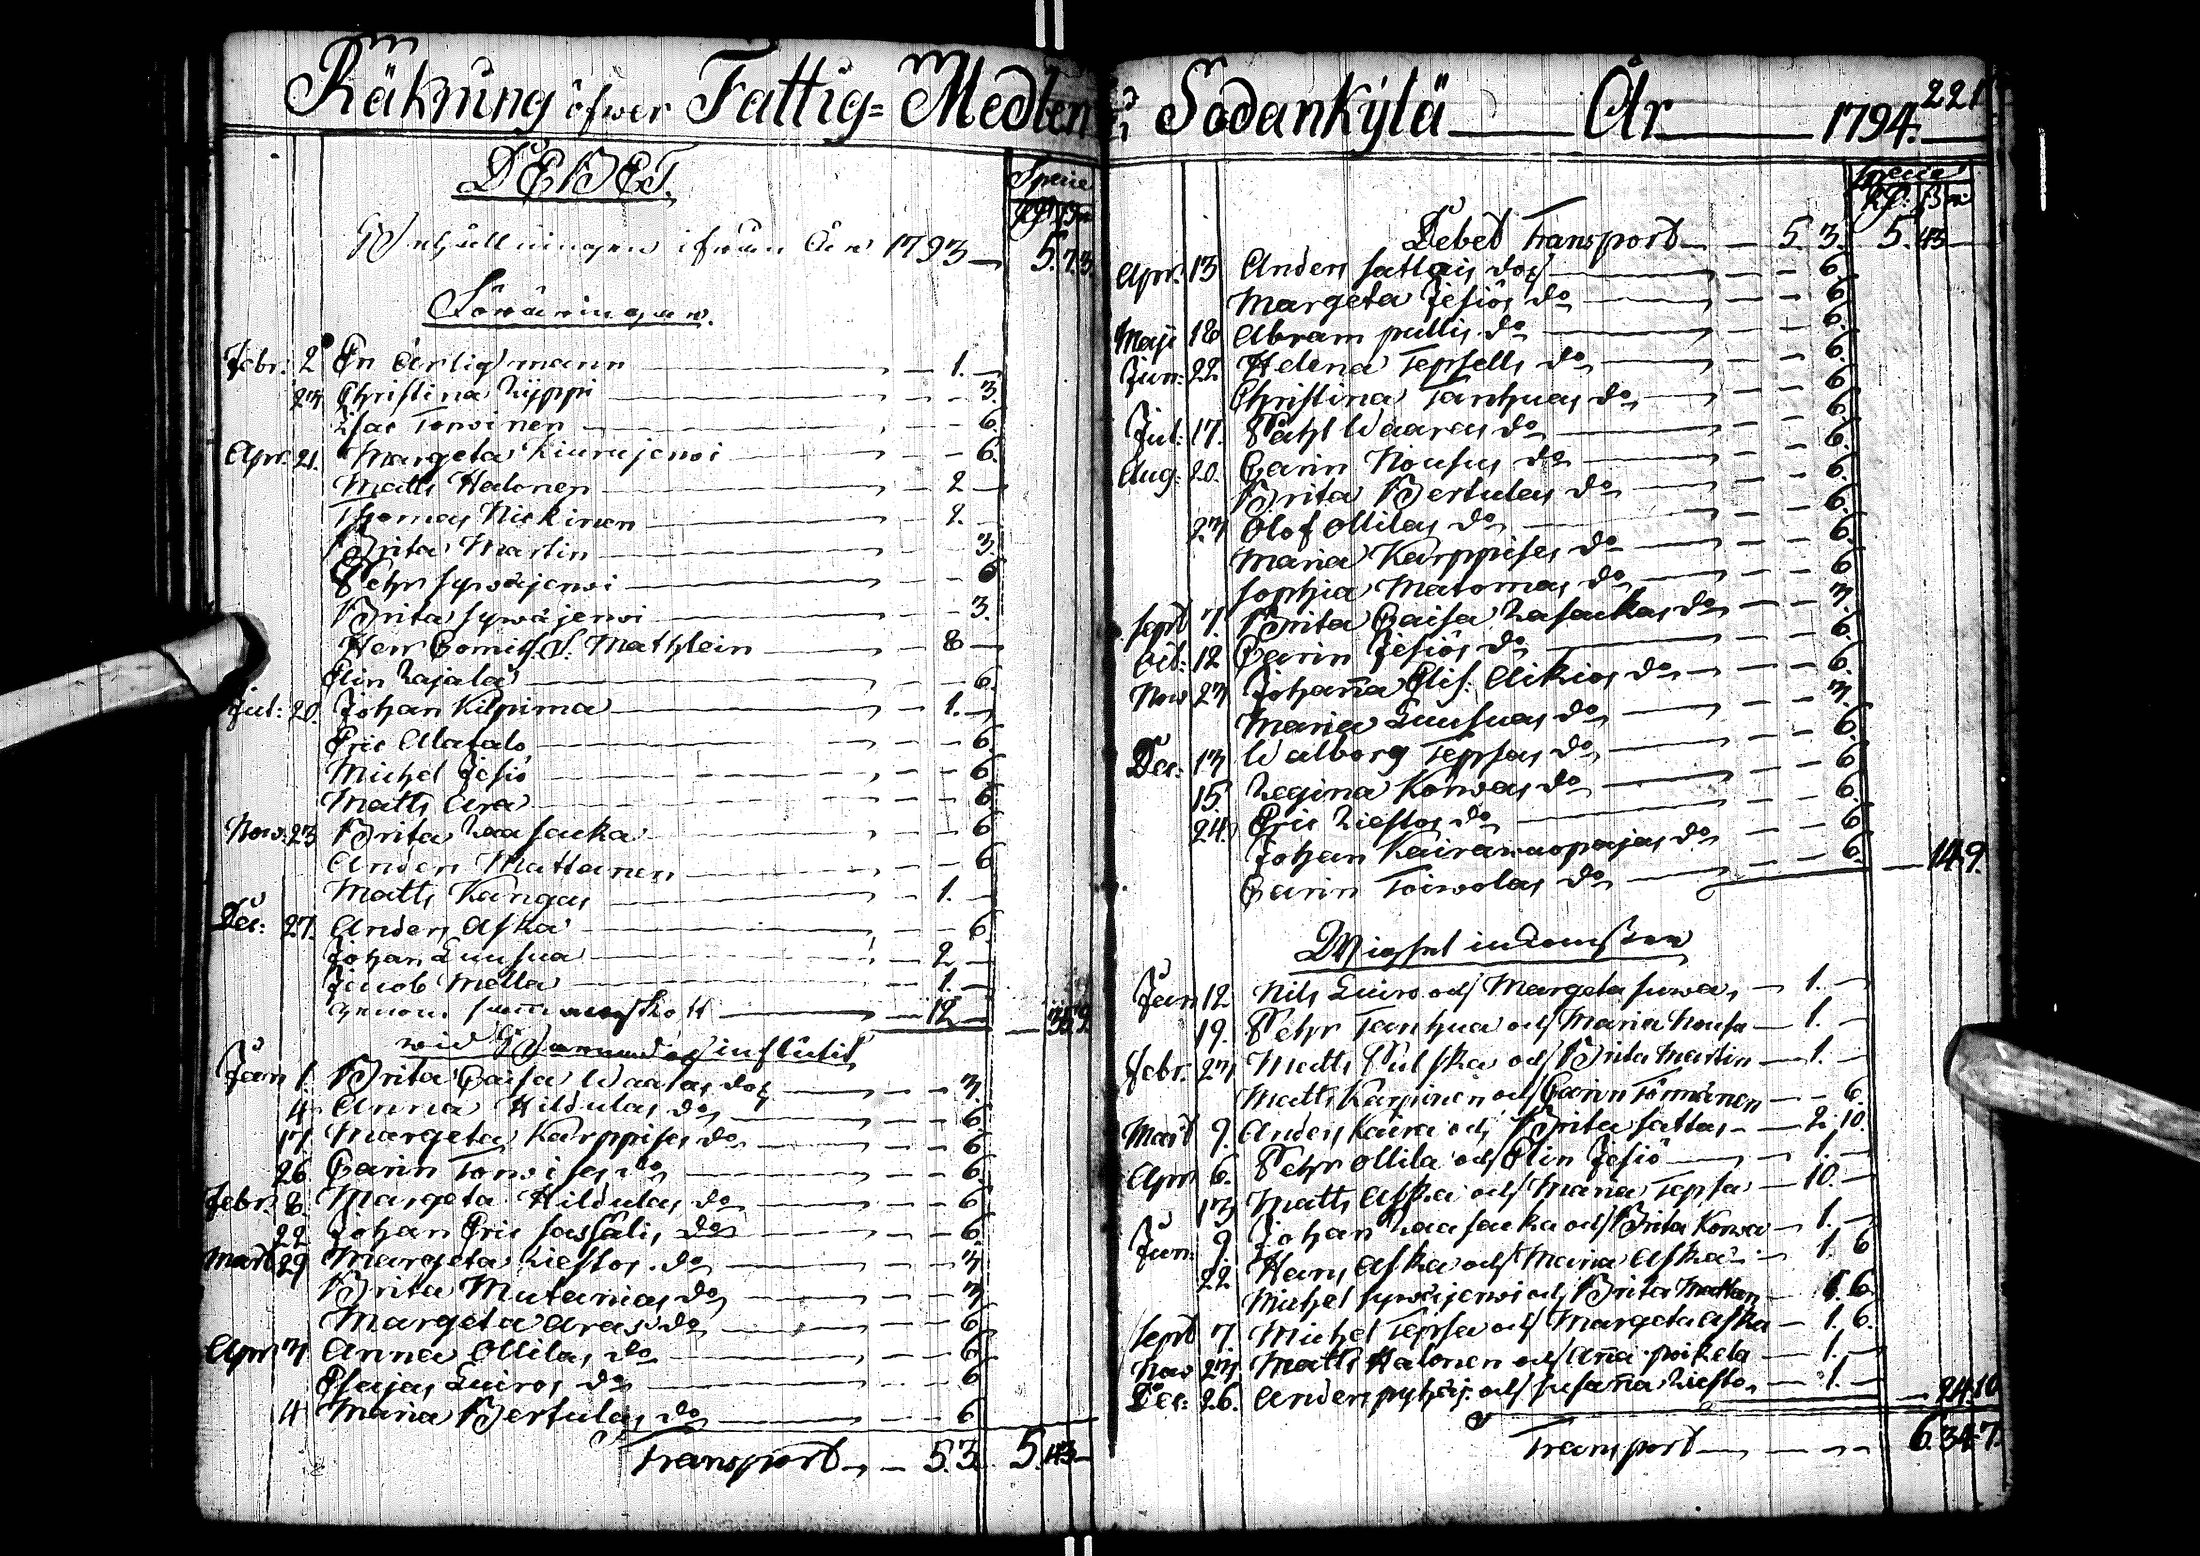 Räkning öfwer Fattig=Medlen i Sodankylä År 1794. 221
DEBET.
Specie
Behållningen ifrån År 1793 — 5.7.3.
Föräringar.
Febr: 2 En ärlig mann — 1. —
23 Christina Lippi — 3.
Isac Torvinen — 6.
Apr: 21. Margeta Kiurujerwi — 6.
Matts Halonen — 2 —
Thomas Niskinen — 2. —
Brita Martin — 3.
Pehr Sywäjerwi — 6
Brita Sywäjerwi — 3.
Herr Comiss. A. Mathlein — 8 —
Elin Rajala — 6.
Jul: 20. Johan Kilpima — 1. —
Eric Alatalo — 6.
Michel Jesiö — 6
Matts Ara — 6
Now: 23 Brita Raasacka — 6
Anders Mattanen — 6
Matts Kangas — 1. —
Dec: 27. Anders Aska — 6.
Johan Luusua — 2 —
Jacob Mella — 1. —
genom — 12 —
wid Barnedop influtit
Jan 1. Brita Caisa Waaras dop — 3
4 Anna Hildulas do — 6.
17. Margeta Karppises do — 6
26. Carin Torwises do — 6
Febr: 8. Margeta Hildulas do — 6
22. Johan Eric Sassalis do — 6.
Mart 29 Margeta Liestos do — 3
Brita Mutanias do — 3
Margeta Aras do — 6
Apr: 3 Anna Ollilas do — 6
Esajas Luiros do — 6
4 Maria Bertulas do — 6
Transport — 5.3. 5.43 —
Specie
Debet Transport — 5.3. 5.43 —
Apr: 13 Anders Sattais dop — 6.
Margeta Jesiös do — 6.
Maji 18 Abram Pallis do — 6.
Jun: 22 Helena Tepsells do — 6.
Christina Tanhuas do — 6.
Jul: 17. Pehr Waaras do — 6.
Aug: 20. Carin Nousus do — 6.
Brita Bertulas do — 6.
23 Olof Ollilas do — 6.
Maria Karppises do — 6.
Sophia Matomas do — 6
Sept 7. Brita Caisa Rasackas do — 3.
Oct: 12 Carin Jesiös do — 6.
Now 23 Johana Elis. Aikios do — 6.
Maria Luusuas do — 3.
Dec: 13 Walborg Tepsas do — 6.
15. Regina Korwas do — 6
24. Eric Liestos do — 6.
Johan Kairawuopajas do — 6
Carin Toiwolas do — 6. — 14.9.
Wigsel inkomsten
Jan 12 Nils Luiro och Margeta Suwa, — 1. —
19. Pehr Tanhua och Maria Nousu — 1. —
Febr: 23 Matts Pulska och Brita Martin — 1. —
Matts Karpinen och Carin Törmänen — 6.
Mart 9. Anders Kaira och Brita Sattas — 2. 10.
Apr: 6. Pehr Ollila och Elin Jesiö — 1. —
13 Matts Aska och Maria Tepsa — 10. —
Jun: 9. Johan Raasacka och Brita Korwa — 1. —
22 Hans Aska och Maria Aska — 1. 6
Michel Sywäjerwi och Brita Mattan — 1. 6.
Sept 7. Michel Tepsa och Margeta Aska — 1. 6.
Now 23 Matts Halonen och Aña Poikela — 1. —
Dec: 26. Anders Pyhäj: och Susaña Liesto, — 1. — 24.10
Transport — 6.34.7.